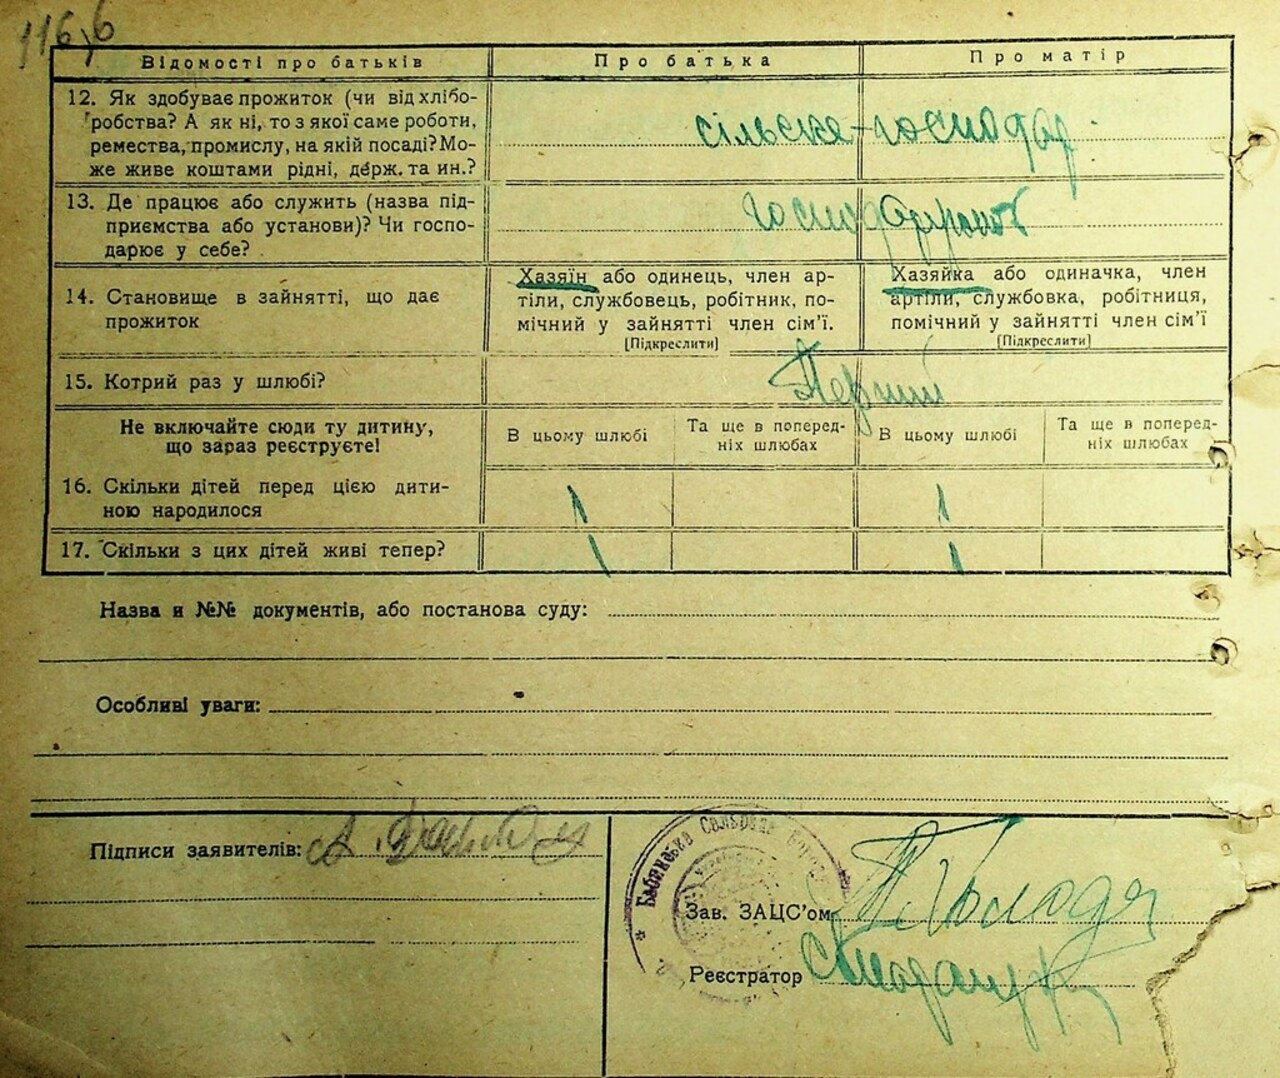 116,б
Відомості про батьків
Про батька
Про матір
12. Як здобуває прожиток (чи від хлібо-
робства? А як ні, то з якої саме роботи,
ремества, промислу, на якій посаді? Мо-
же живе коштами рідні, держ. та ин.?
сільське-господар.
13. Де працює або служить (назва під-
приємства або установи)? Чи госпо-
дарює у себе?
14. Становище в зайнятті, що дає
прожиток
Хазяїн або одинець, член ар-
тіли, службовець, робітник, по-
мічний у зайнятті член сім'ї.
[Підкреслити]
Хазяйка або одиначка, член
артіли, службовка, робітниця,
помічний у зайнятті член сім'ї
[Підкреслити]
15. Котрий раз у шлюбі?
Перший
Не включайте сюди ту дитину,
що зараз реєструєте!
В цьому шлюбі
Та ще в поперед-
ніх шлюбах
В цьому шлюбі
Та ще в поперед-
ніх шлюбах
16. Скільки дітей перед цією дити-
ною народилося
1
1
17. Скільки з цих дітей живі тепер?
1
1
Назва и №№ документів, або постанова суду:
Особливі уваги:
Підписи заявителів:
Зав. ЗАЦС'ом
Реєстратор